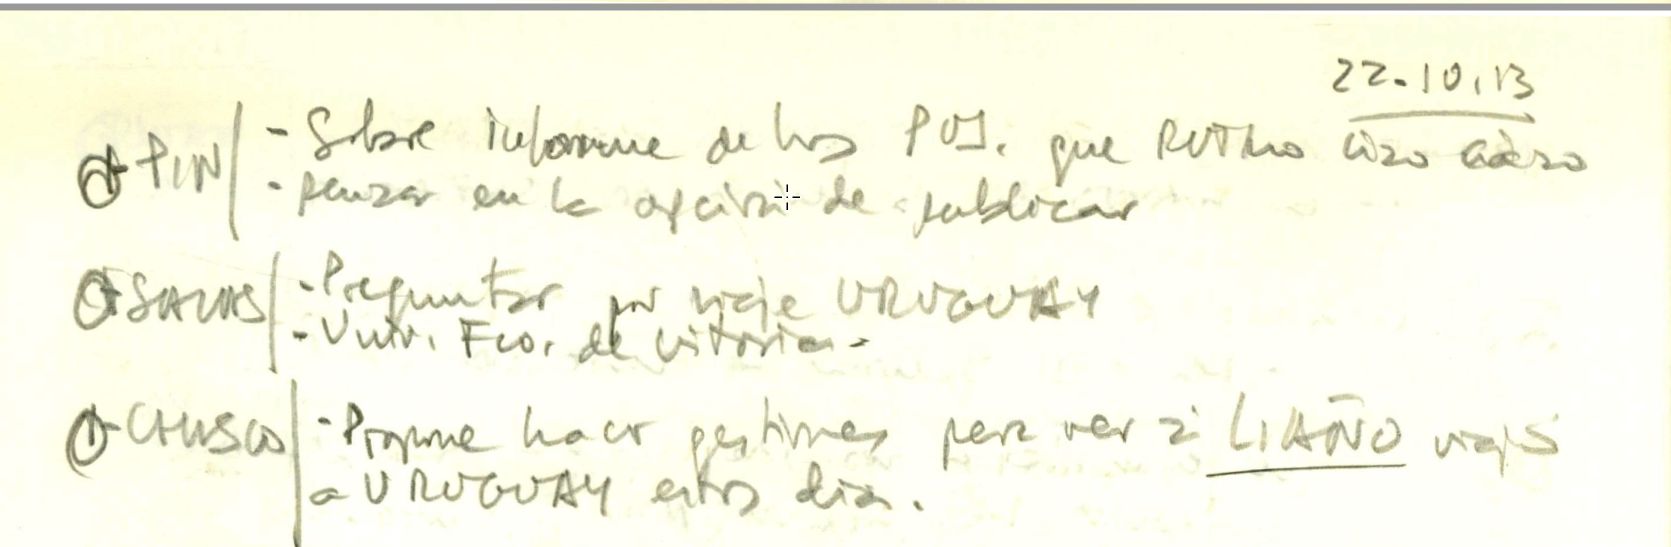 22.10.13
PIN - Sobre informe de los que
- pensar en la opción de publicar
- Preguntar por viaje URUGUAY
- Univ. Fco. de Vitoria.
CHUSCO - Propone hacer gestiones para ver si LIAÑO viajó
a URUGUAY estos días.